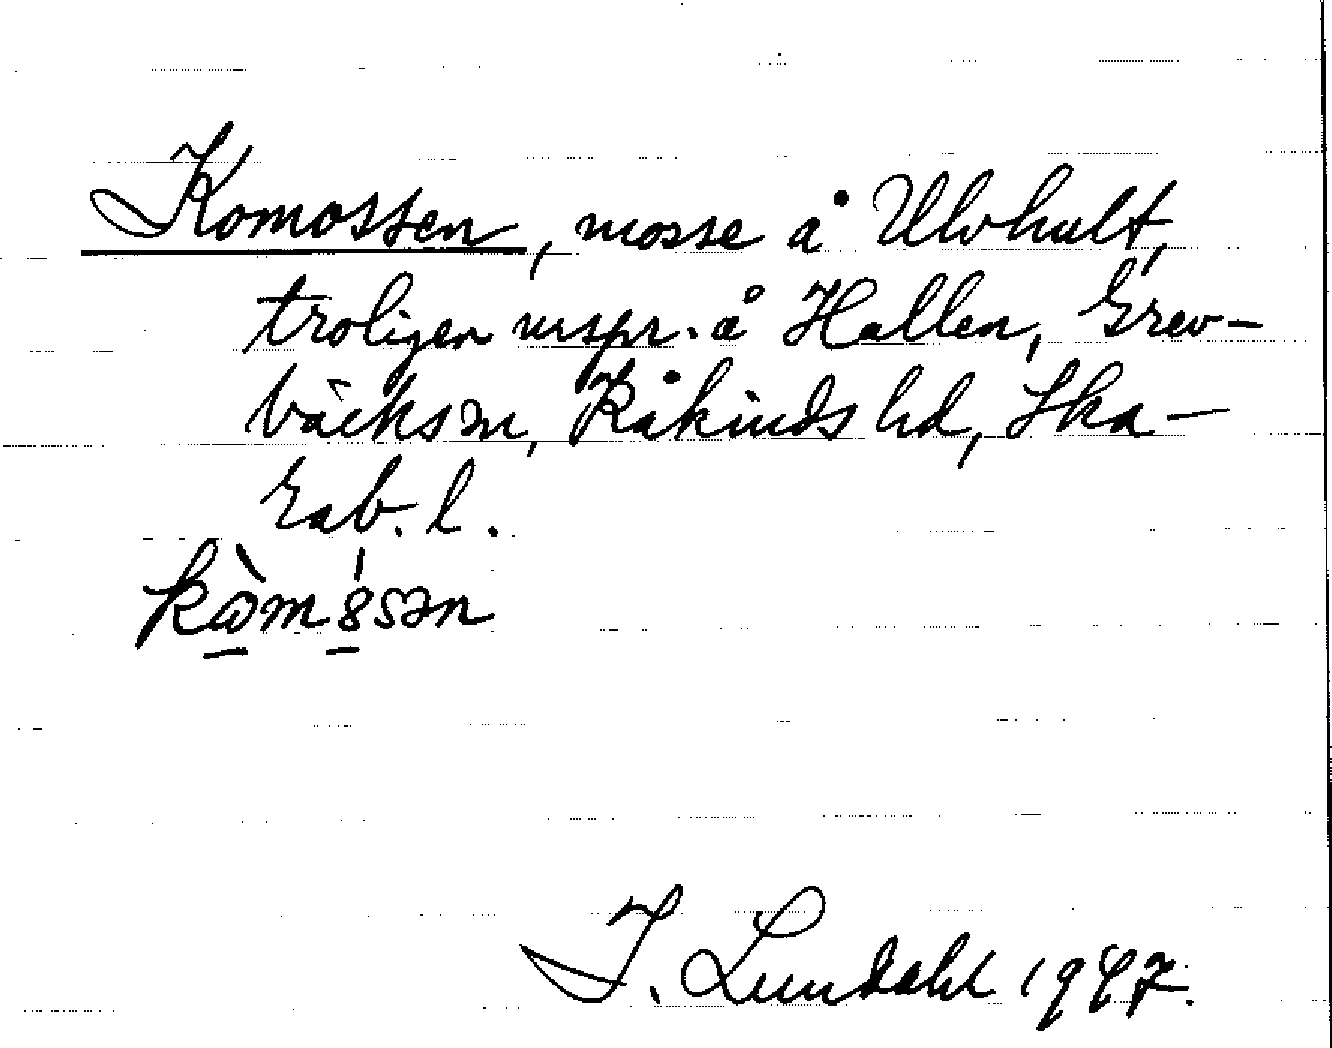 Komossen, mosse å Ulvhult,
troligen urspr. å Hallen, Grev-
bäcks sn, Kåkinds hd, Ska-
rab. l.
I. Lundahl 1947.